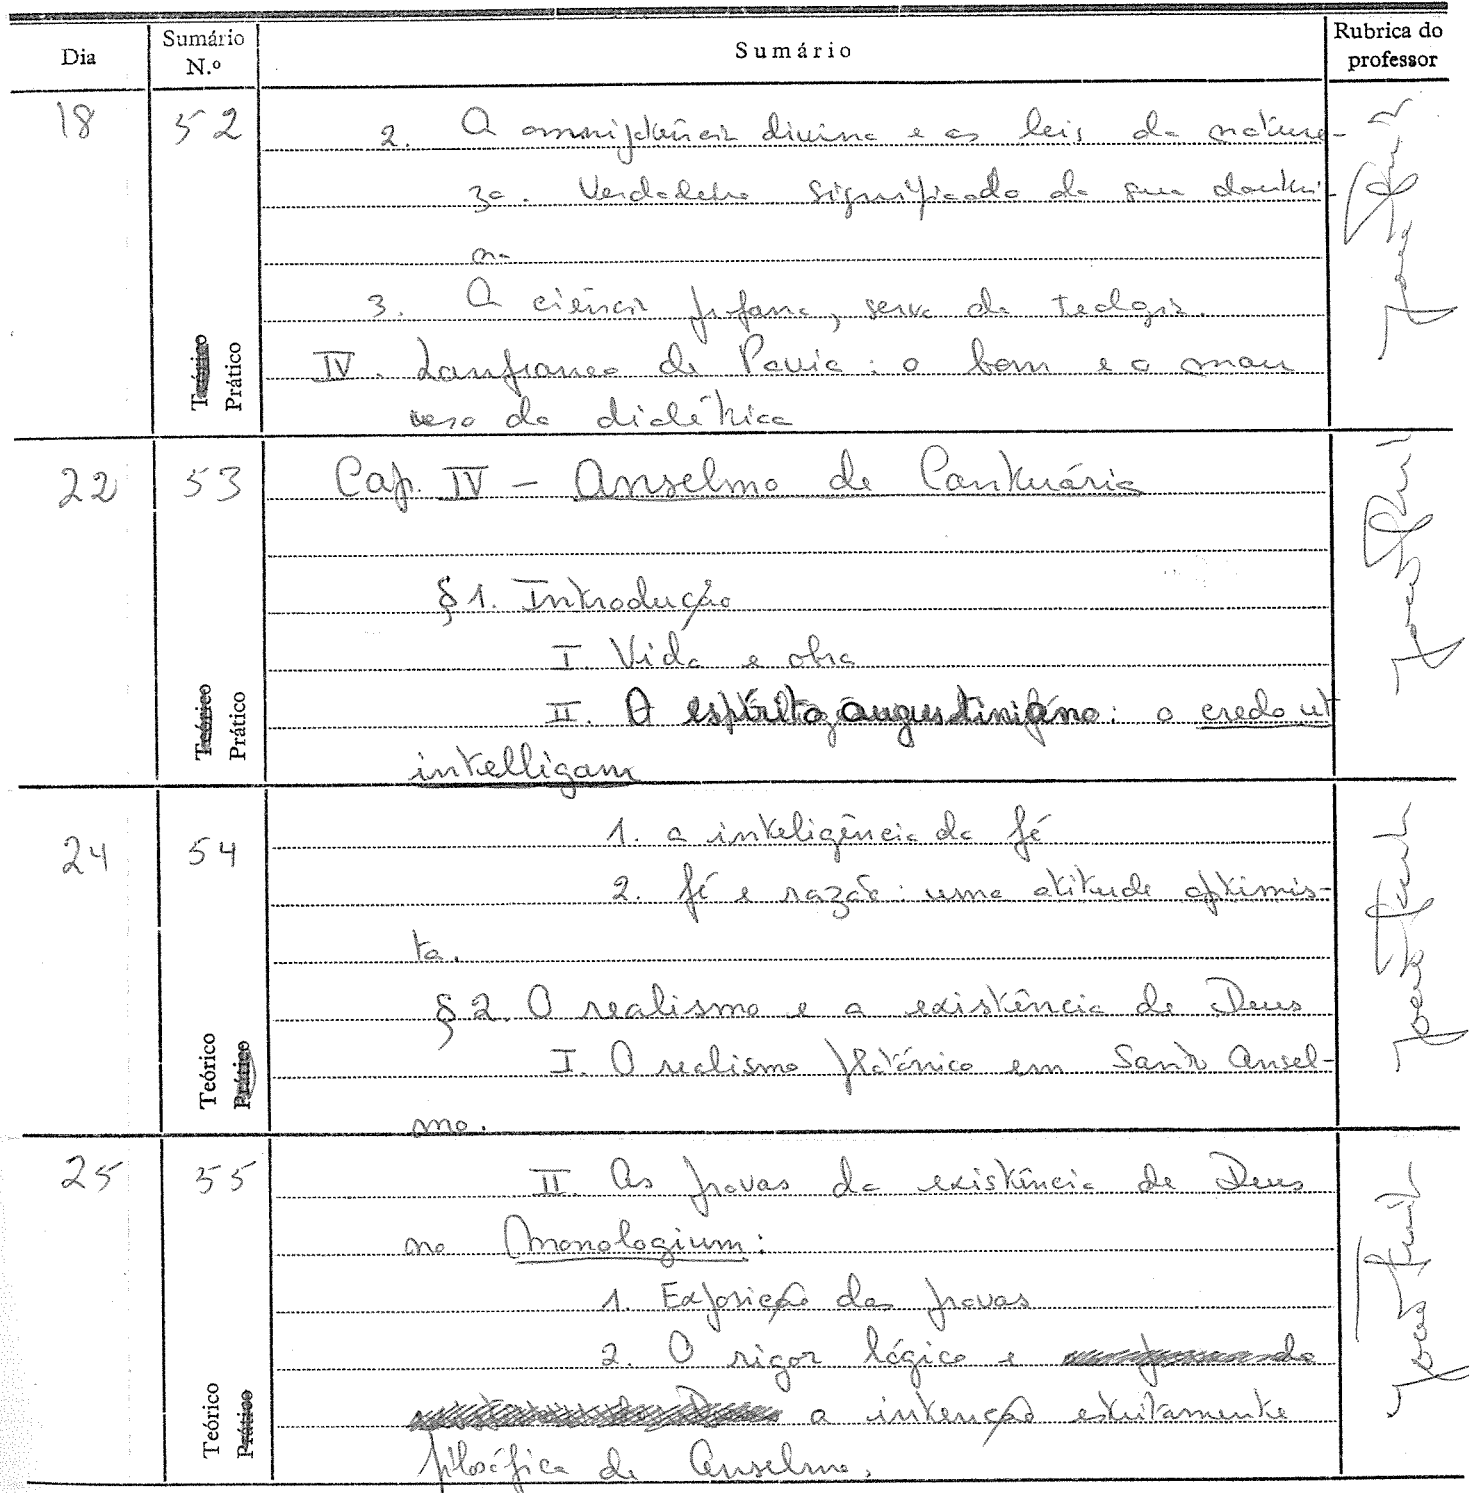 Dia
Sumário N.º
Sumário
Rubrica do professor
18
52
2. A omnipotência divina e as leis da nature-
za. Verdadeiro significado da sua doutri-
na
3. A ciência profana, serva da teologia.
IV. Lanfranco de Pavia: o bom e o mau
uso da dialéctica
Teórico
Prático
22
53
Cap. IV – Anselmo de Cantuária
§ 1. Introdução
I. Vida e obra
II. O espírito augustiniano: o credo ut
intelligam
Teórico
Prático
24
54
1. a inteligência da fé
2. fé e razão: uma atitude optimis-
ta.
§ 2. O realismo e a existência de Deus
I. O realismo platónico em Santo Ansel-
mo.
Teórico
Prático
25
55
II. As provas da existência de Deus
no Monologium:
1. Exposição das provas
2. O rigor lógico e
a intenção estritamente
filosófica de Anselmo.
Teórico
Prático